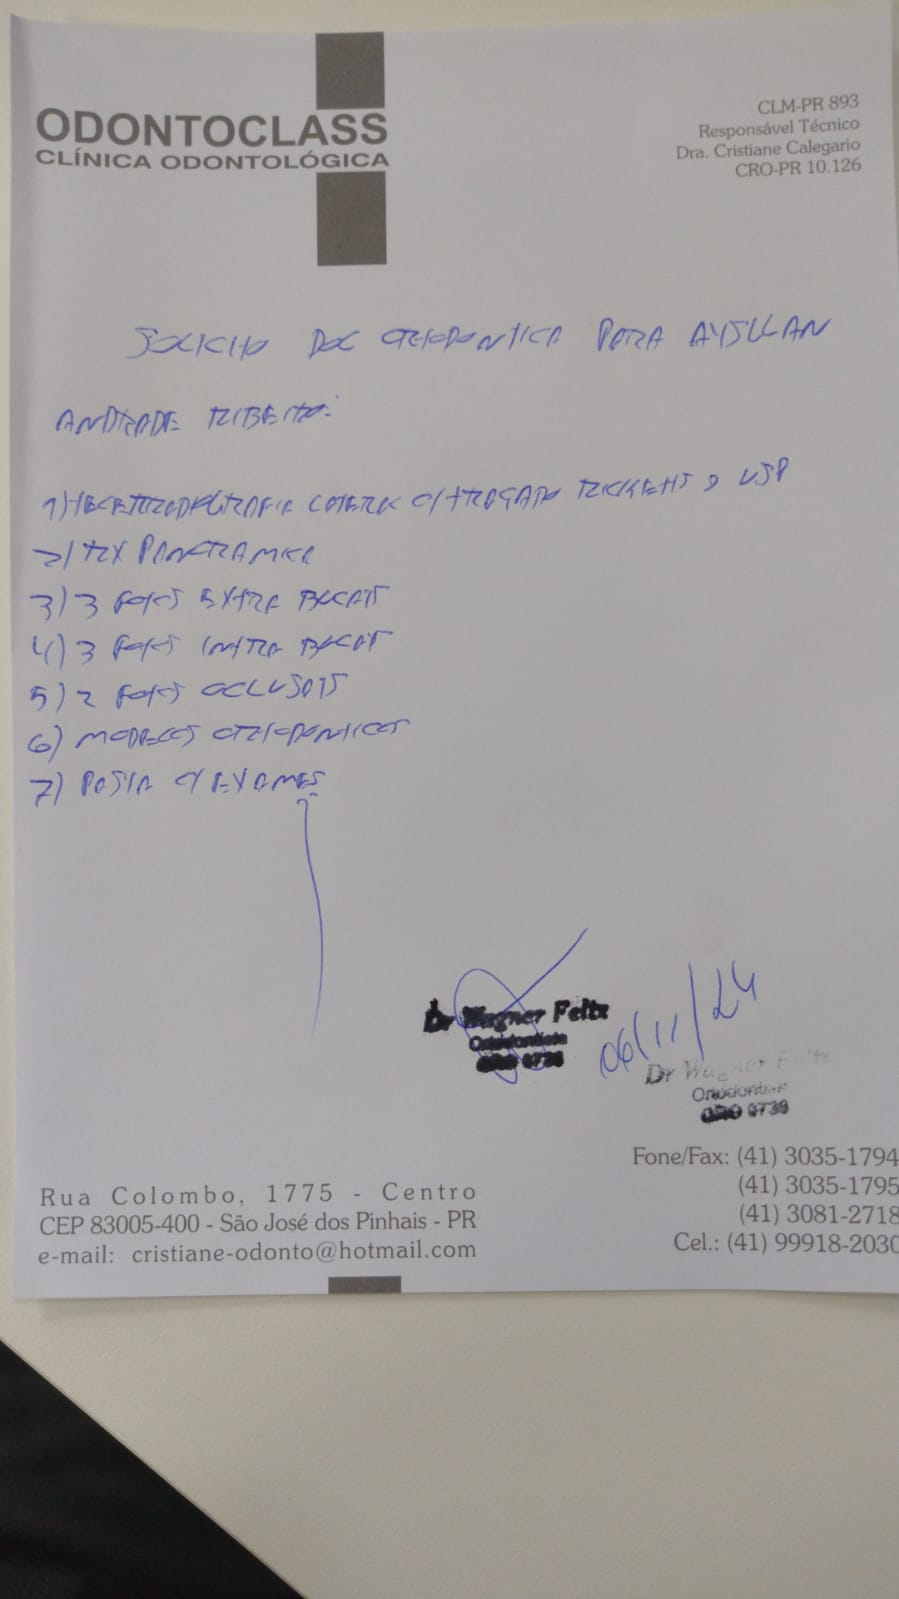 ODONTOCLASS
CLÍNICA ODONTOLÓGICA
CLM-PR 893
Responsável Técnico
Dra. Cristiane Calegario
CRO-PR 10.126
SOLICITO DOC ORTODONTICA PARA
ANDRADE RIBEIRO:
1) LATERAL C/ TRAÇADO USP
2) RX PANORAMICA
3) 3 FOTOS EXTRA BUCAIS
4) 3 FOTOS INTRA BUCAIS
5) 2 FOTOS OCLUSAIS
6) MODELOS ORTODONTICOS
7) PASTA C/ EXAMES
Dr Wagner Feltz
Ortodontista
CRO 9738
06/11/24
Dr Wagner Feltz
Ortodontista
CRO 9738
Rua Colombo, 1775 - Centro
CEP 83005-400 - São José dos Pinhais - PR
e-mail: cristiane-odonto@hotmail.com
Fone/Fax: (41) 3035-1794
(41) 3035-1795
(41) 3081-2718
Cel.: (41) 99918-2030